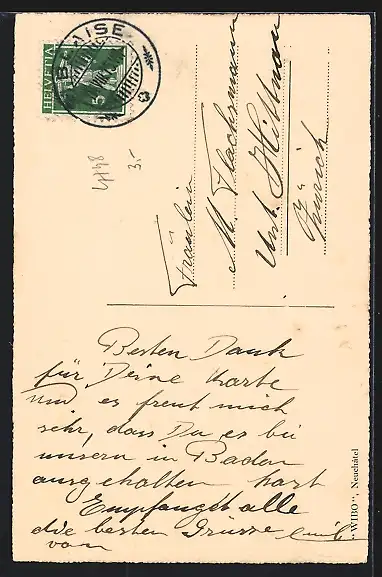 BLAISE
HELVETIA
5
4148
3.-
Fräulein
M. Flachsmann
Unt. Hittnau
Zürich
Besten Dank
für Deine Karte
und es freut mich
sehr, dass Du es bei
unsern in Baden
ausgehalten hast
Empfanget alle
die besten Grüsse
von
"WIBO", Neuchâtel